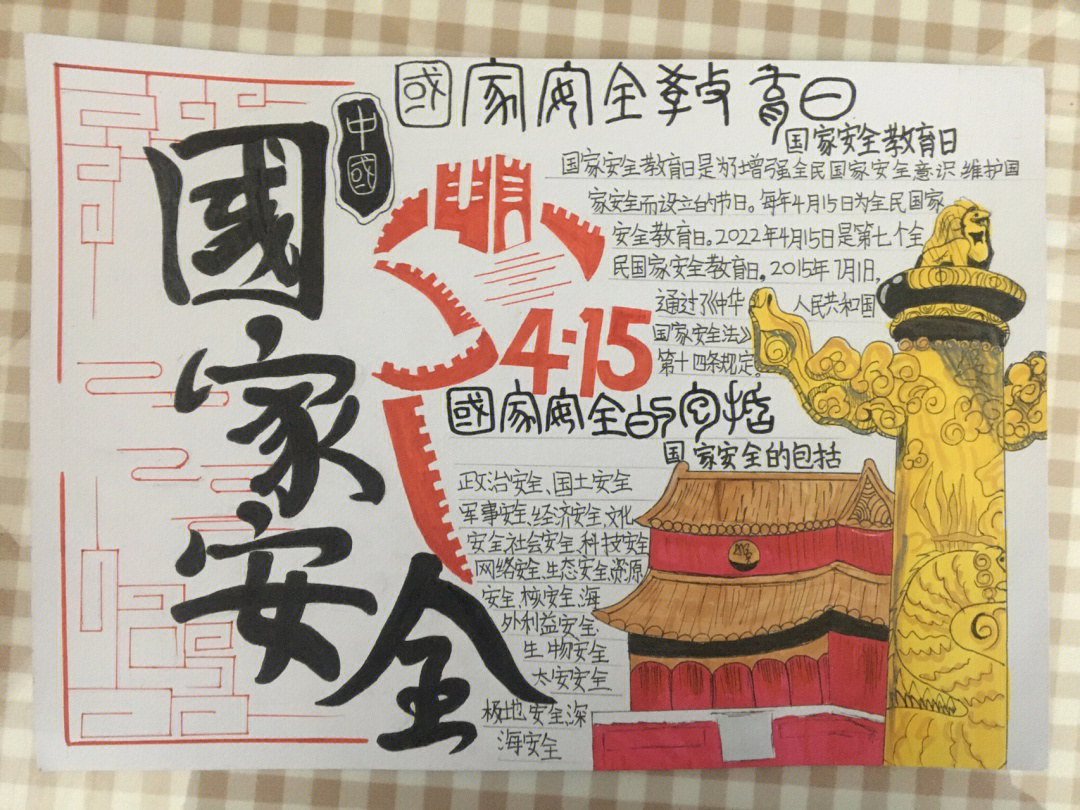 國家安全
中國
國家安全教育日
国家安全教育日
国家安全教育日是为增强全民国家安全意识维护国
家安全而设立的节日。每年4月15日为全民国家
安全教育日。2022年4月15日是第七个全
民国家安全教育日。2015年7月1日,
通过了《中华人民共和国
国家安全法》
第十四条规定。
4·15
國家安全的包括
国家安全的包括
政治安全、国土安全
军事安全、经济安全、文化
安全社会安全、科技安全
网络安全、生态安全、资源
安全、核安全、海
外利益安全
生物安全
太安安全
极地安全、深
海安全